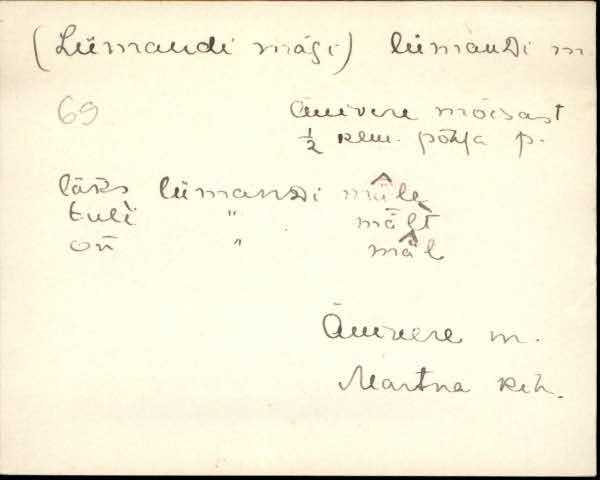 (Lümandi mägi) lümanDi m
69
Ännvere mõisast
½ klm. põhja p.
läks lümanDi mäle
tuli " mält
on " mäl
Ännvere m.
Martna khk.